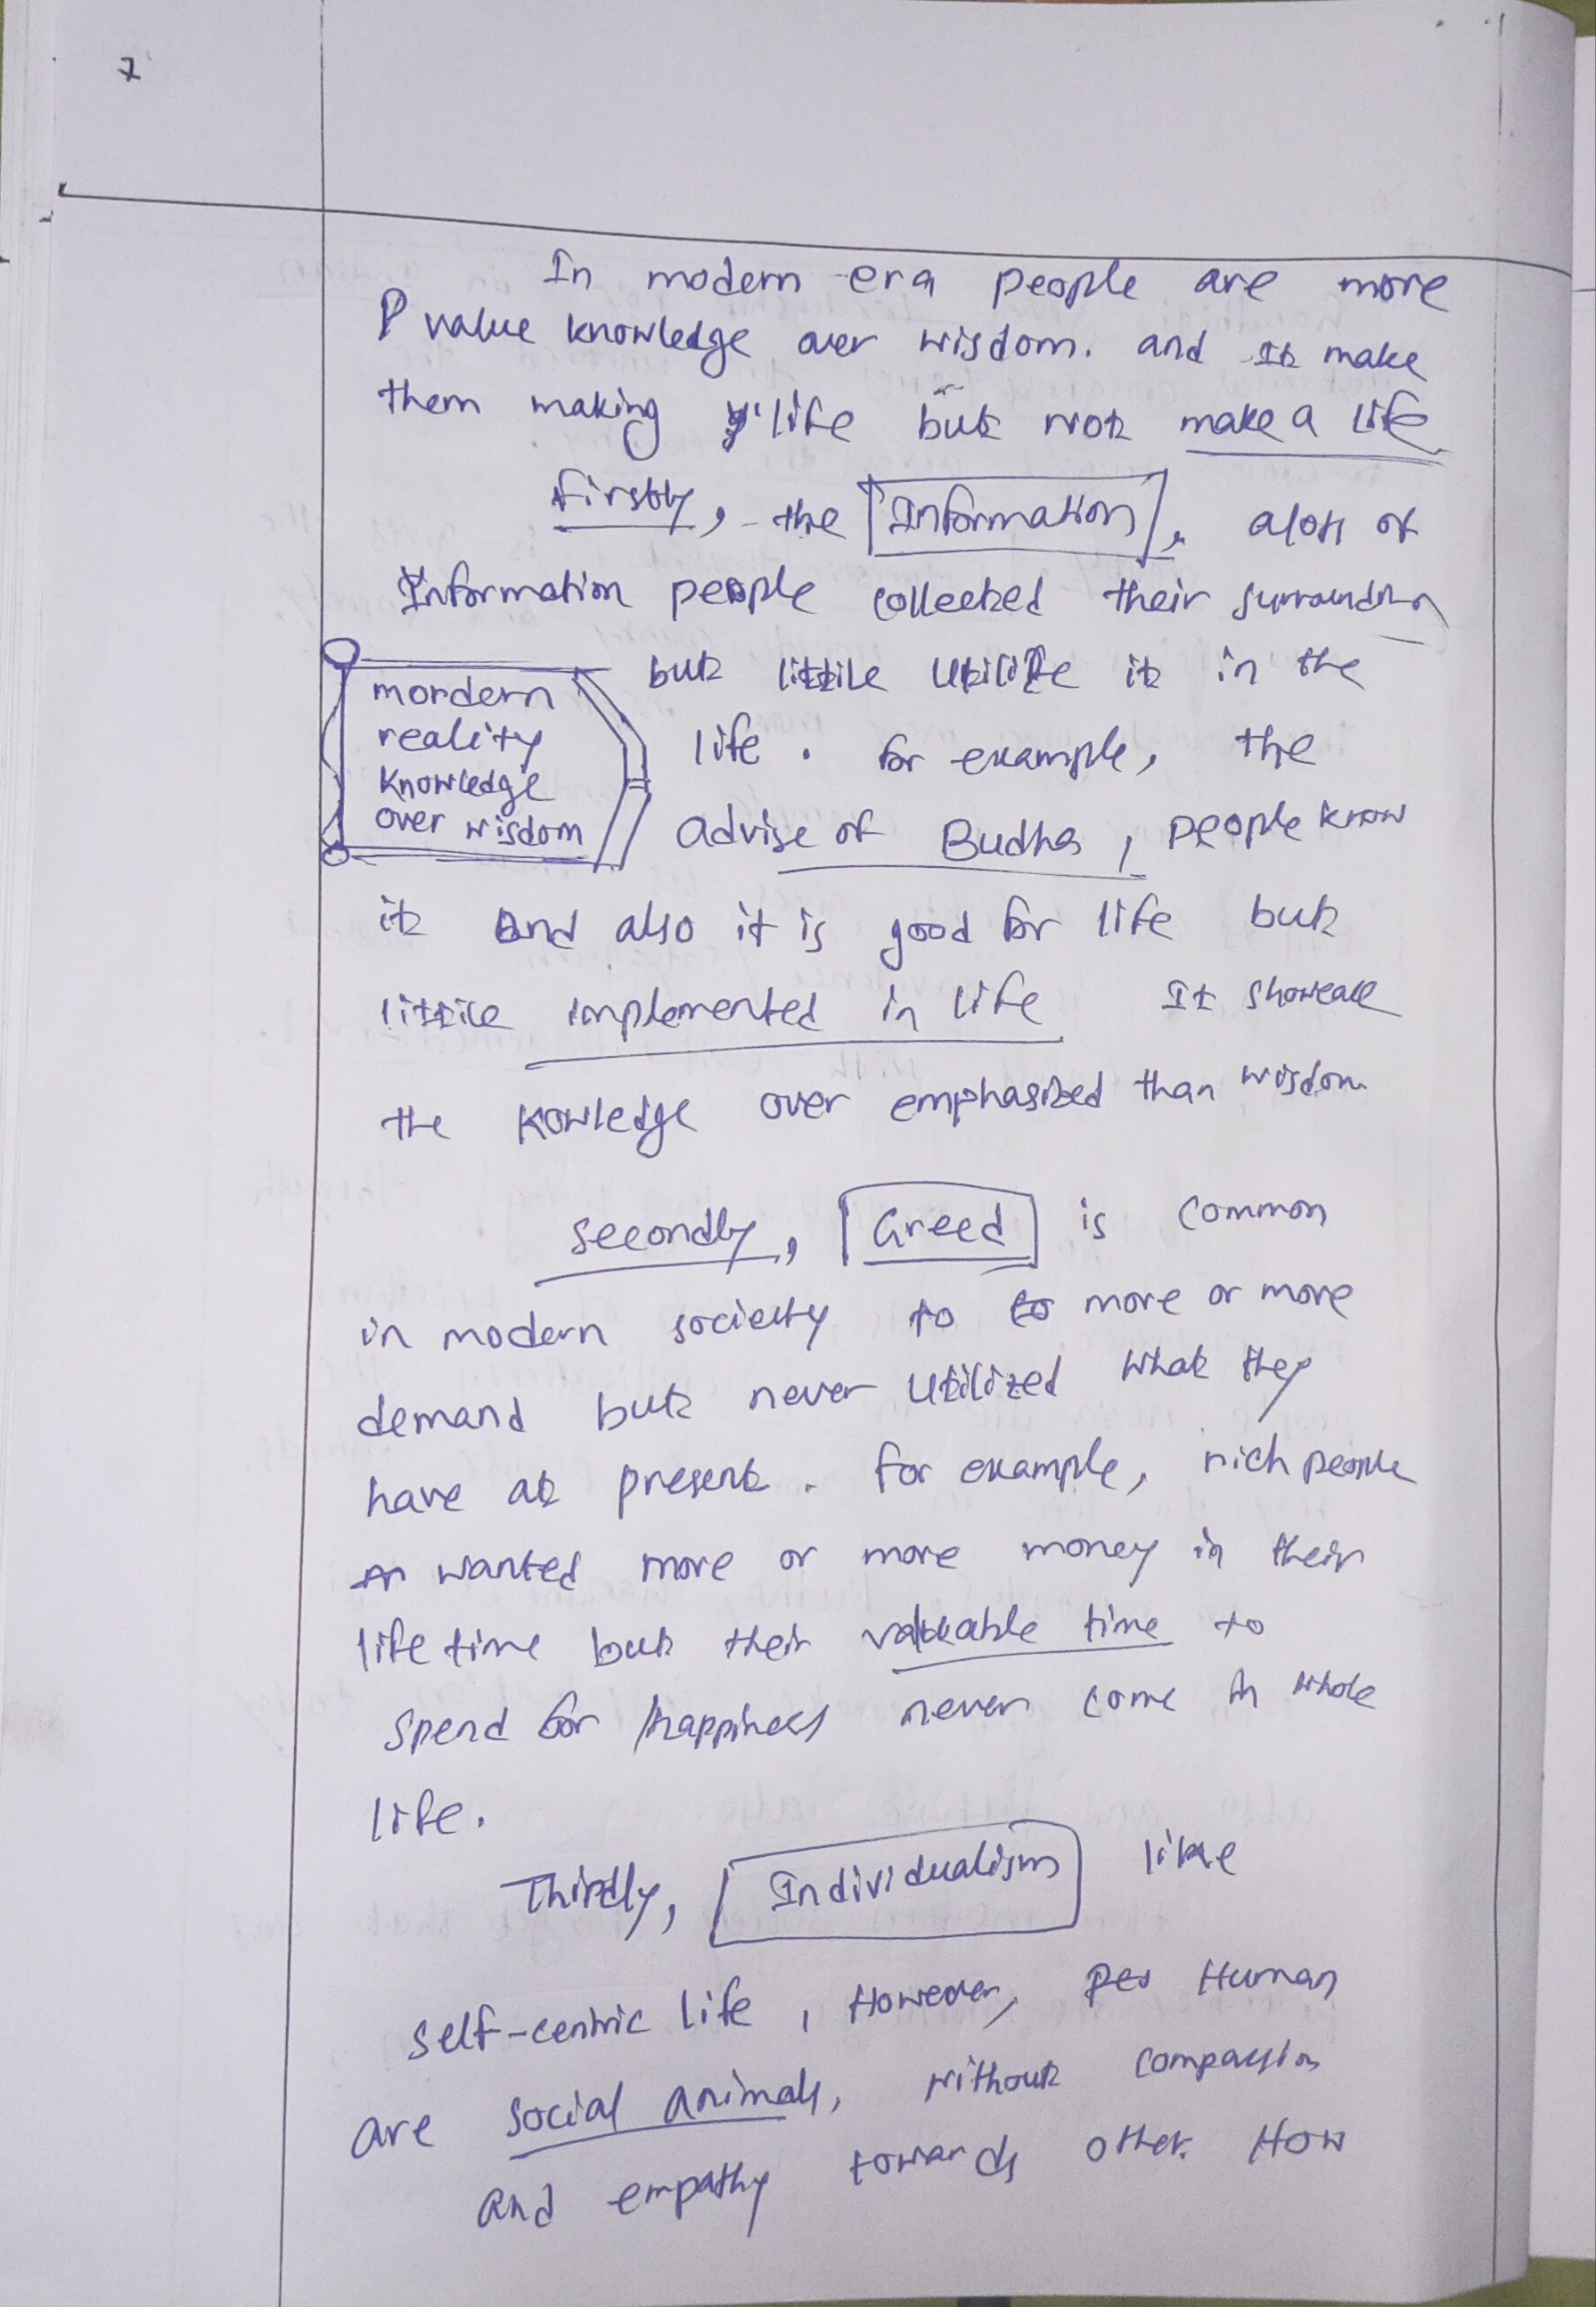 7
In modern era people are more
value knowledge over wisdom. and It make
them making life but not make a life
firstly, the Information, alott of
Information people collected their surrounding
but little utilize it in the
mordern
reality
knowledge
over wisdom
life. for example, the
advise of Budha, people know
it and also it is good for life but
little implemented in life It showcase
the kowledge over emphasized than wisdom
secondly, Greed is common
in modern society to to more or more
demand but never utilized what they
have at present. for example, rich people
wanted more or more money in their
life time but their valuable time to
spend for happiness never come in whole
life.
Thirdly, Individualism like
self-centric life, However, Human
are social animals, without compassion
and empathy towards other. How